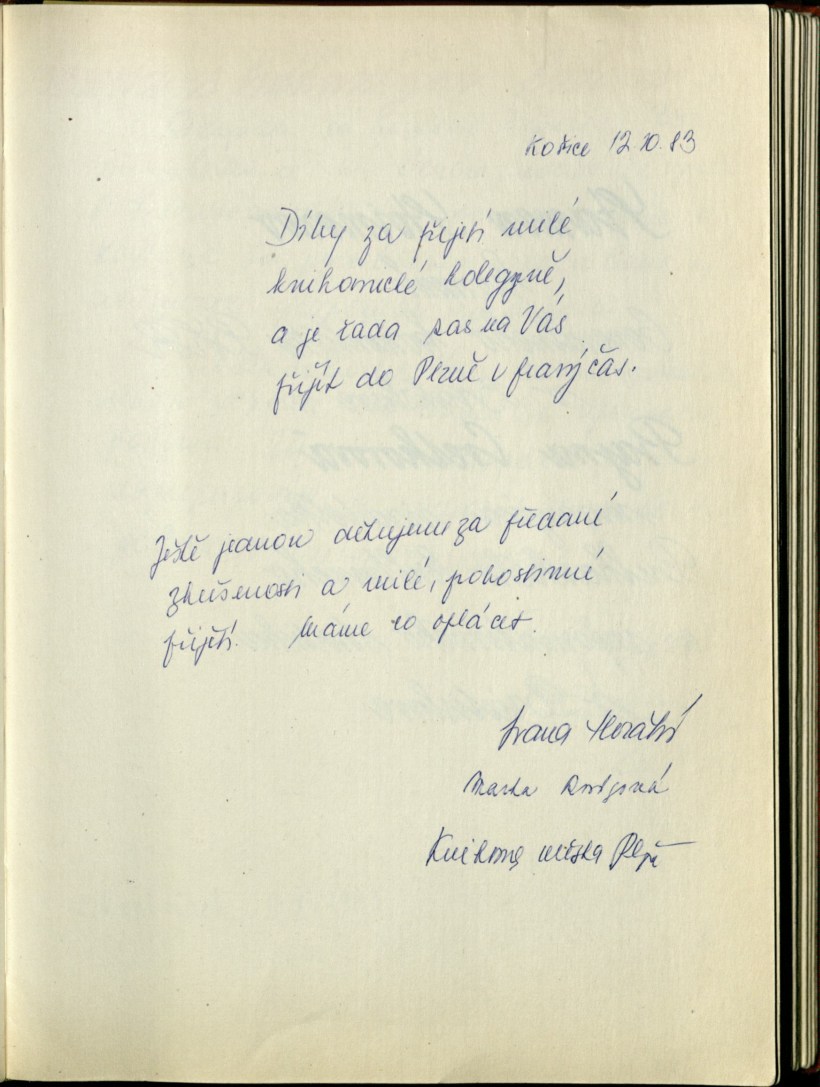 Košice 12.10.83
Díky za přijetí milé
knihovnické kolegyně,
a je řada zas na Vás
přijít do Plzně v pravý čas.
Ještě jednou děkujeme za předané
zkušenosti a milé, pohostinné
přijetí. Máme co oplácet.
Ivana Horákí
Marta
Knihovna města Plzně